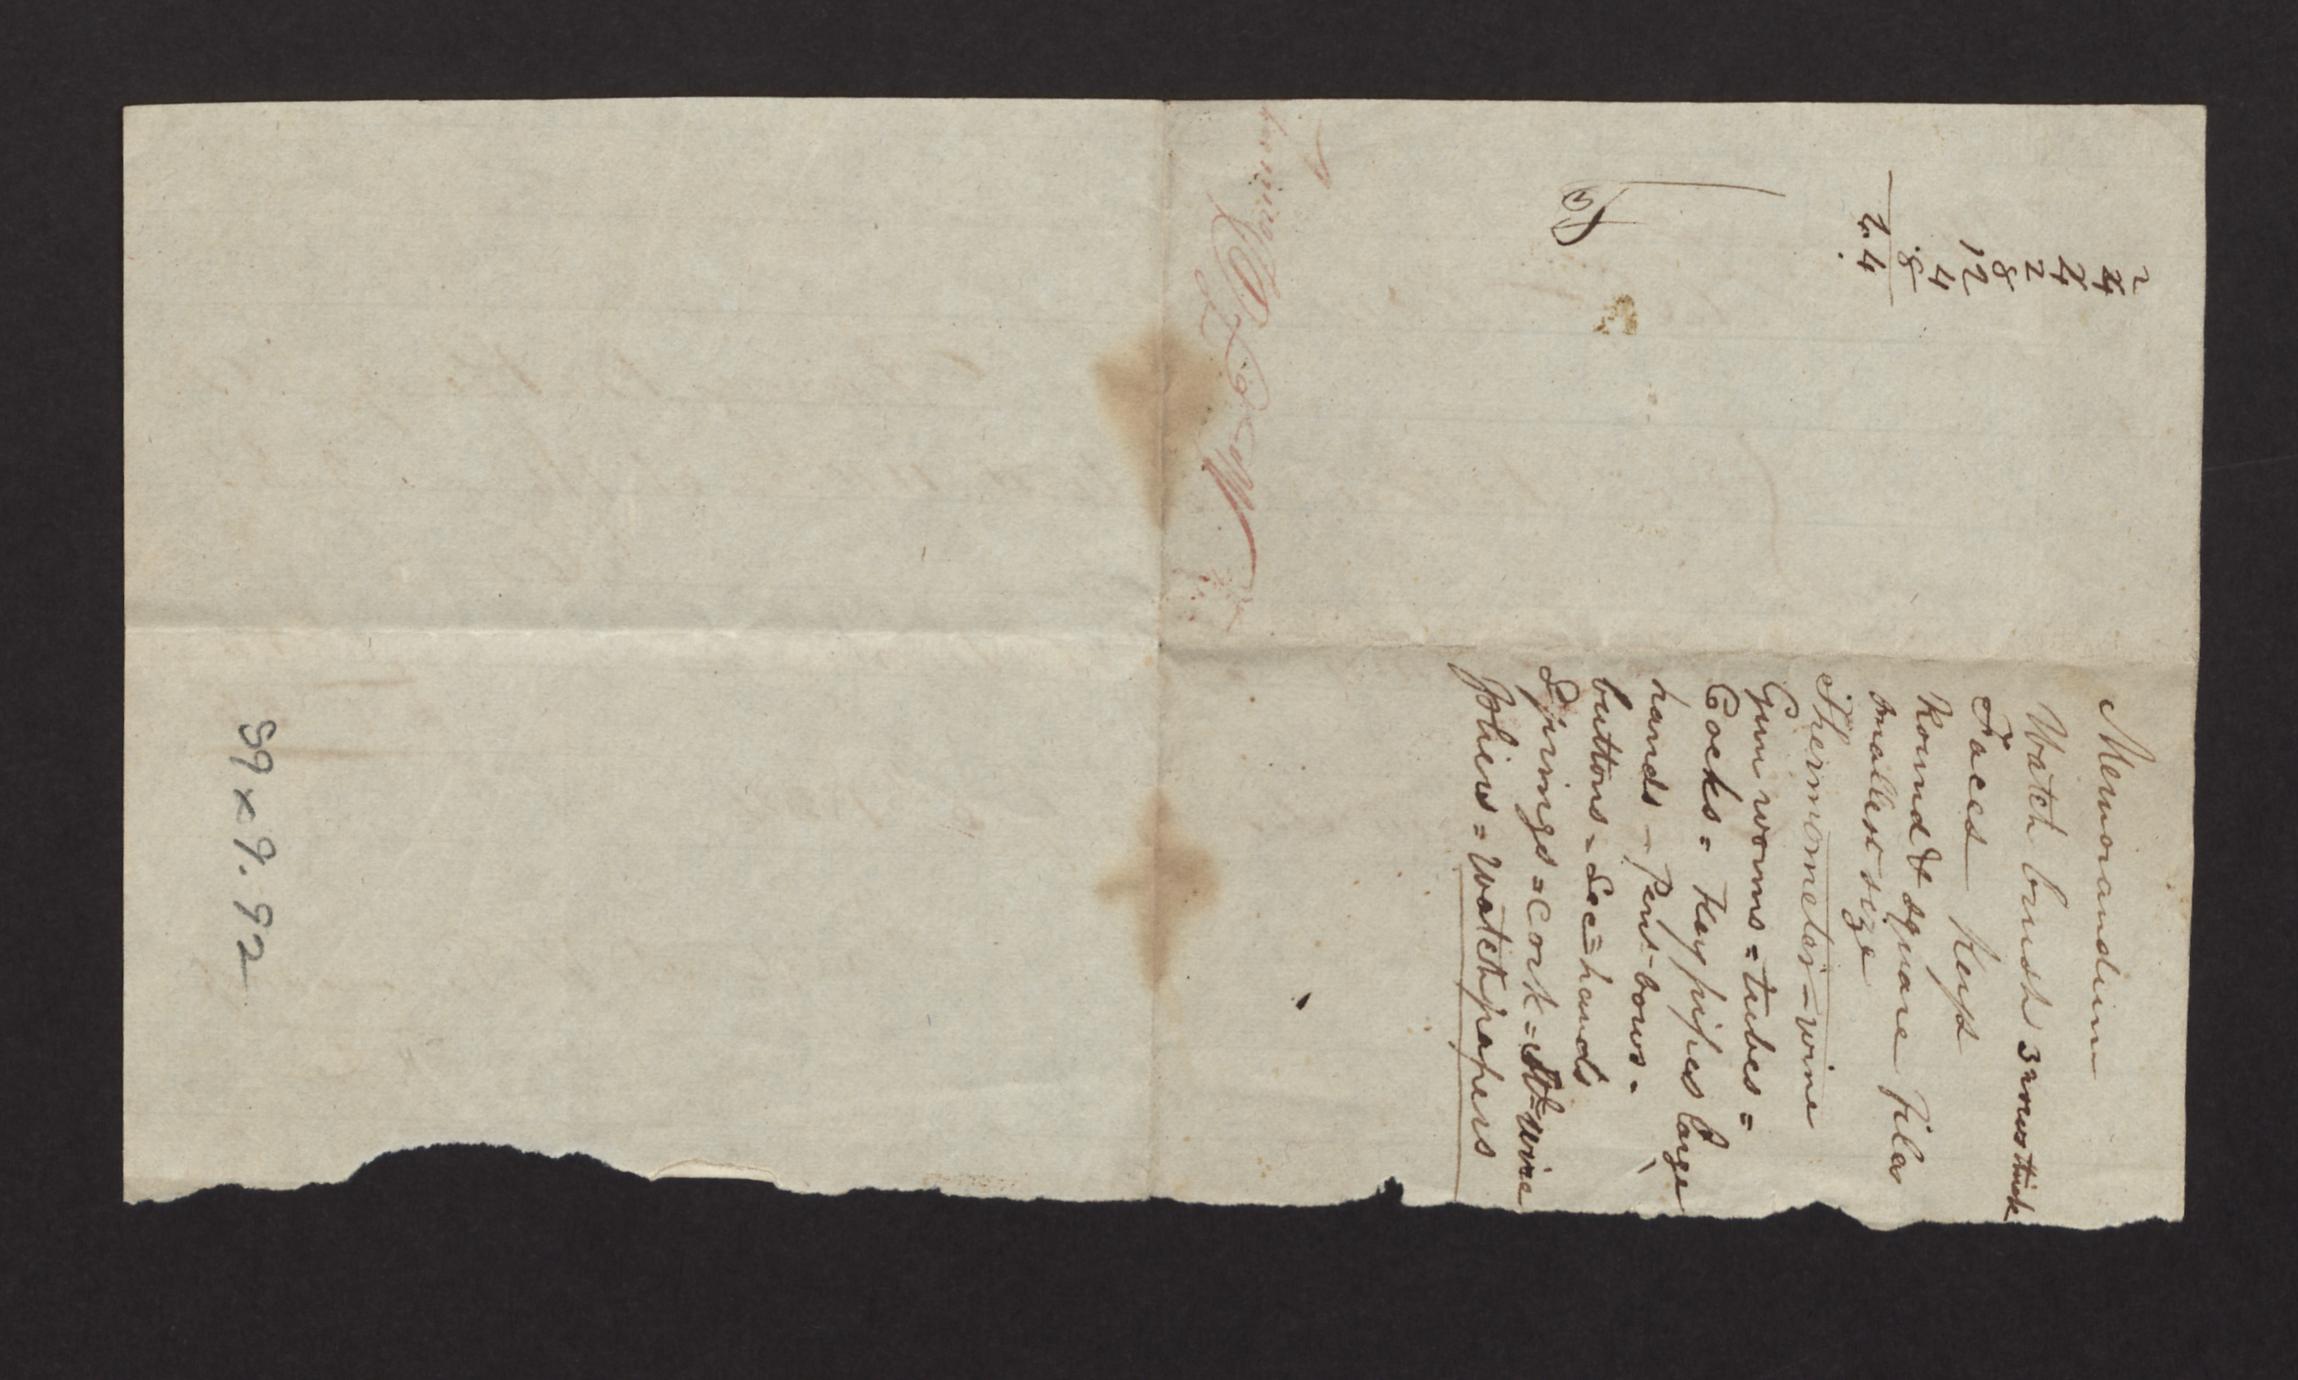 Memorandum
Watch brush 3 rows thick
Faces Keys
Round & square File
smaller size
Thermometer = wire
Gun worms = tubes =
Cocks = Key pipes large
hands - Pens - bows -
buttons - Sec = hands
Springs = Cork = St = wire
= Watch papers
2
24
24
2
8
12
4
8
24
To
59x9.92